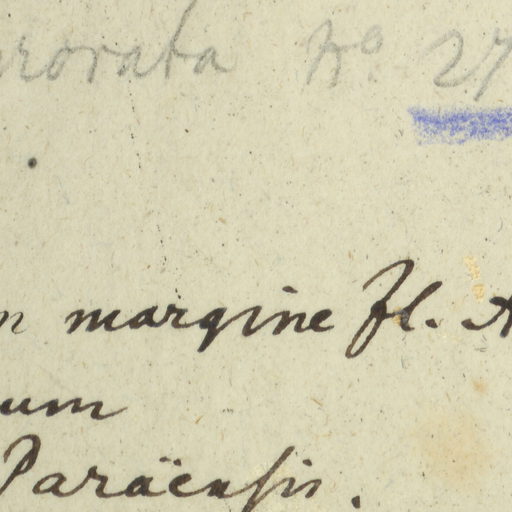 rorata No 27
n margine fl. A
um
Paräensis.